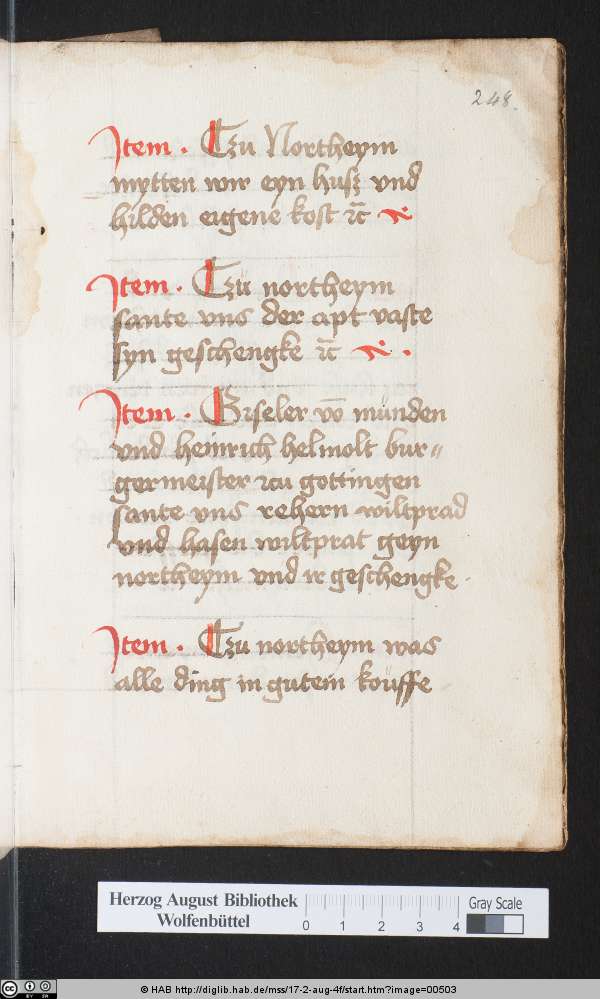 248.
Item . Tzu Northeym
mytten wir eyn husz vnd
hilden eigene kost ꝛc̄
Item . Tzu northeym
sante vns der apt vaste
syn geschengke ꝛc̄ .
Item . Giseler vō munden
vnd heinrich helmolt bur„
germeister zcu gottingen
sante vns rehern wiltprad
vnd hasen wiltprat geyn
northeym vnd ir geschengke .
Item . Tzu northeym was
alle ding in gutem kouffe
Herzog August Bibliothek
Wolfenbüttel
0 1 2 3 4
Gray Scale
© HAB http://diglib.hab.de/mss/17-2-aug-4f/start.htm?image=00503
cc BY SA